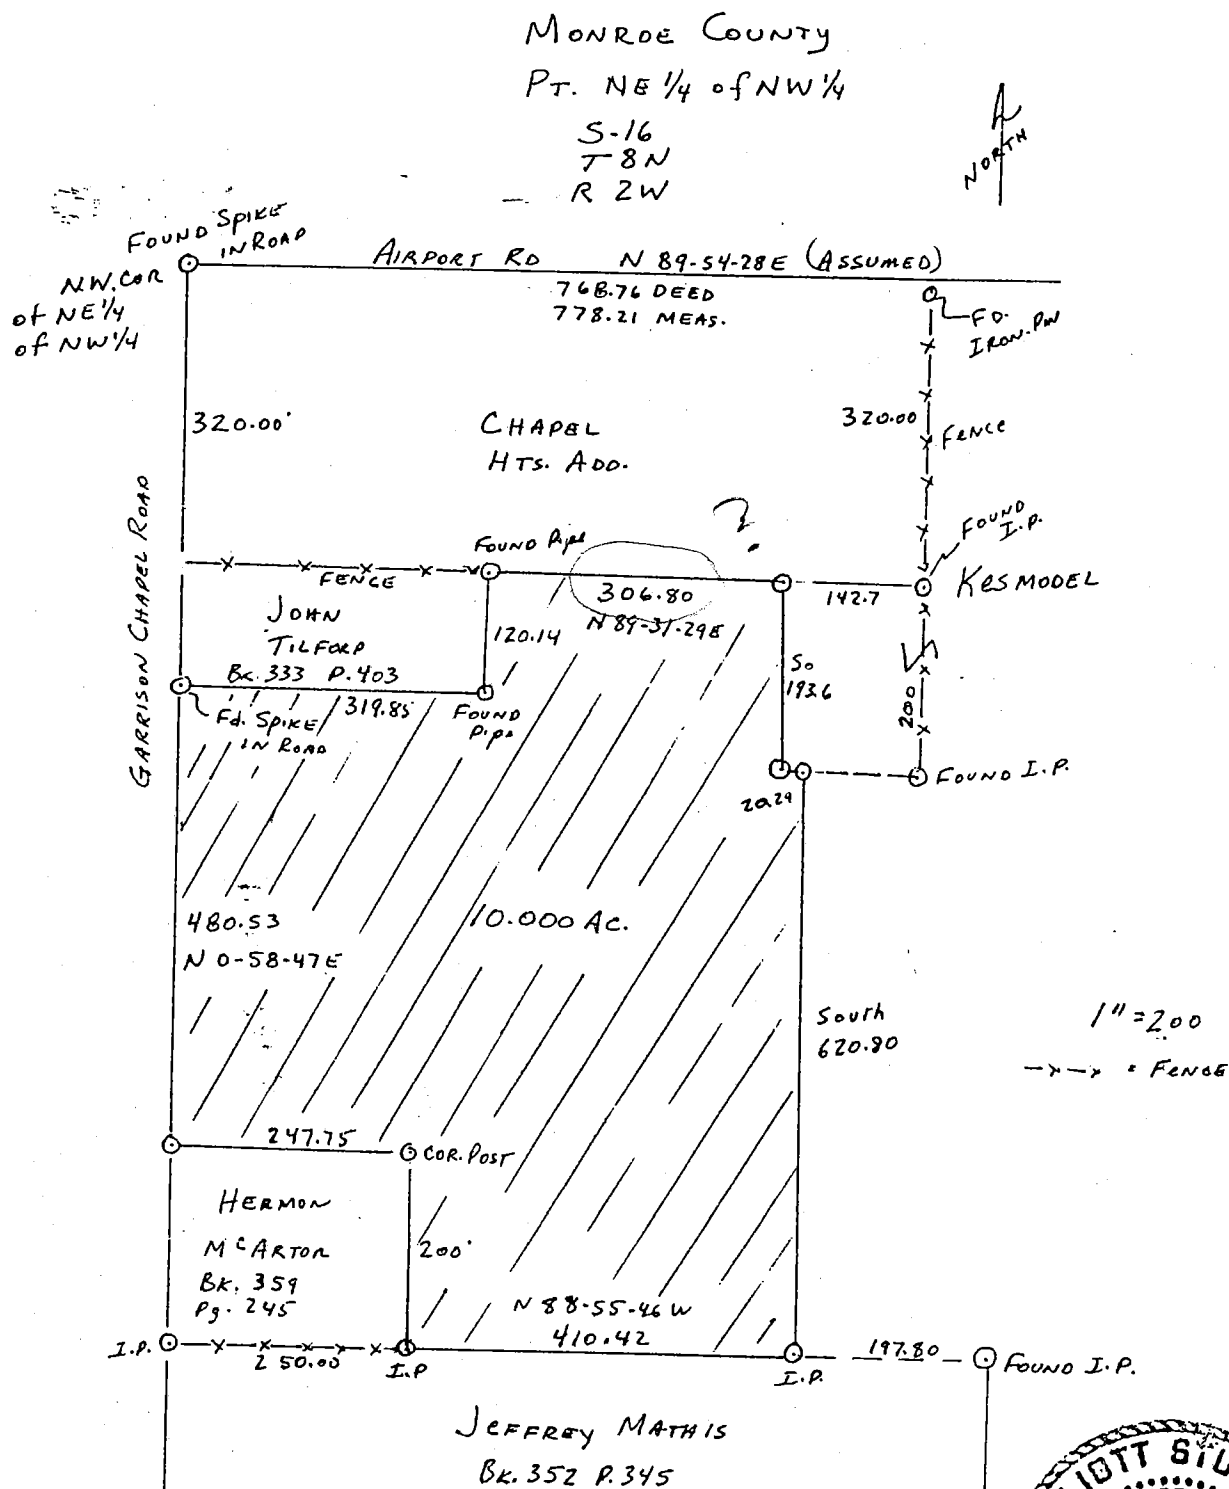 MONROE COUNTY
PT. NE 1/4 of NW 1/4
S-16
T 8N
R 2W
NORTH
FOUND SPIKE
IN ROAD
N.W. COR
of NE 1/4
of NW 1/4
AIRPORT RD N 89-54-28E (ASSUMED)
768.76 DEED
778.21 MEAS.
FD.
IRON. PIN
320.00'
CHAPEL
HTS. ADD.
320.00
FENCE
GARRISON CHAPEL ROAD
?
FOUND
I.P.
FOUND Pipe
FENCE
306.80
N 89-31-29E
142.7
KESMODEL
JOHN
TILFORD
BK. 333 P. 403
120.14
So
193.6
200
319.85
Fd. SPIKE
IN ROAD
FOUND
Pipe
20.29
FOUND I.P.
480.53
N 0-58-47E
10.000 AC.
South
620.80
1" = 200
-x-x = FENCE
247.75
COR. POST
HERMON
McARTOR
BK. 359
Pg. 245
200'
N 88-55-46 W
410.42
I.P.
250.00
I.P
I.P.
197.80
FOUND I.P.
JEFFREY MATHIS
BK. 352 P. 345